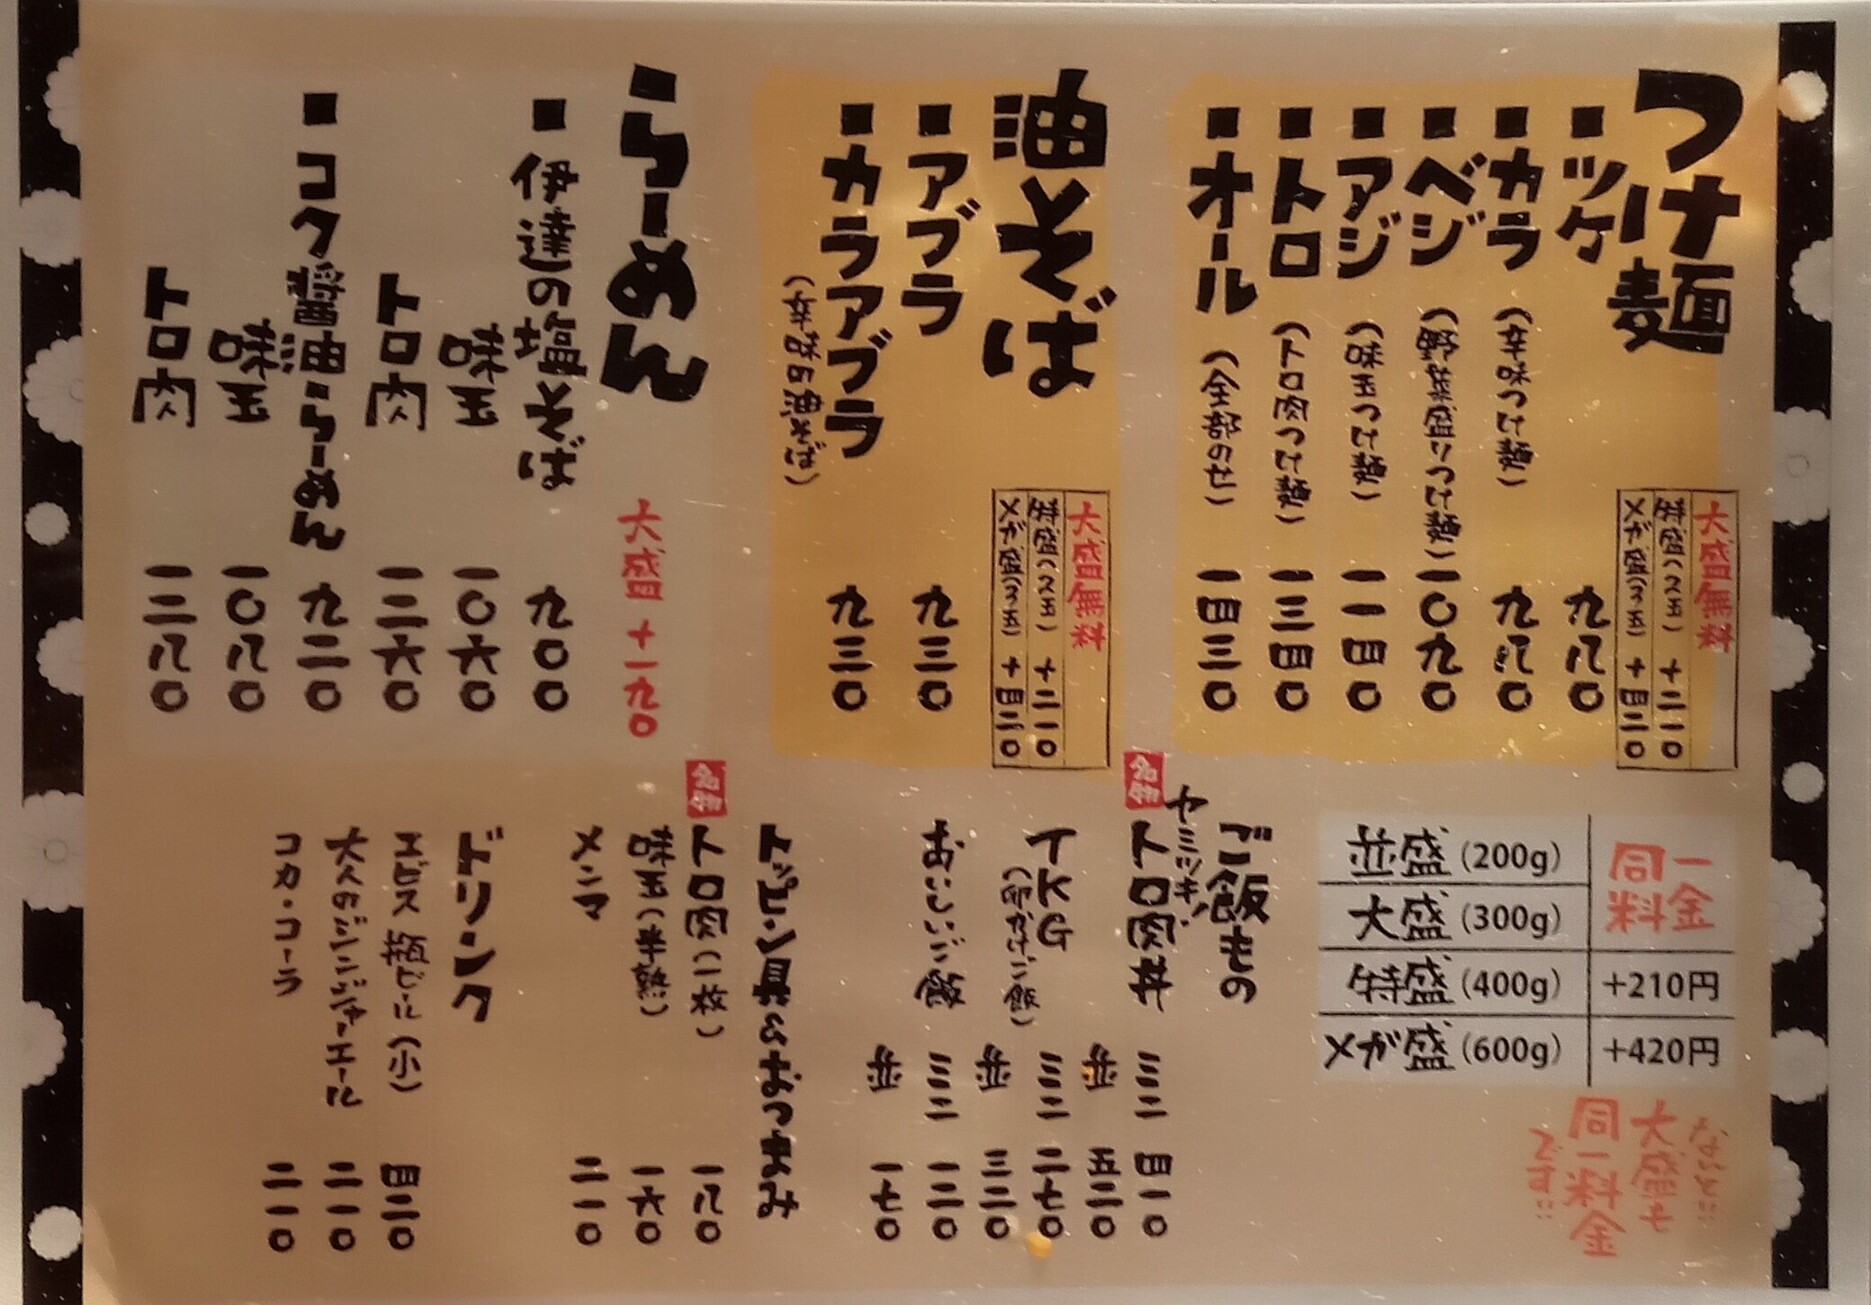 つけ麺
大盛無料
特盛(2玉) +二一〇
メガ盛(3玉) +四二〇
■ツケ 九八〇
■カラ (辛味つけ麺) 九八〇
■ベジ (野菜盛りつけ麺) 一〇九〇
■アジ (味玉つけ麺) 一一四〇
■トロ (トロ肉つけ麺) 一三四〇
■オール (全部のせ) 一四三〇
油そば
大盛無料
特盛(2玉) +二一〇
メガ盛(3玉) +四二〇
■アブラ 九三〇
■カラアブラ 九三〇
(辛味の油そば)
らーめん
大盛 +一九〇
■伊達の塩そば 九〇〇
味玉 一〇六〇
トロ肉 一二六〇
■コク醤油らーめん 九二〇
味玉 一〇八〇
トロ肉 一二八〇
並盛(200g) 同一料金
大盛(300g)
特盛(400g) +210円
メガ盛(600g) +420円
なんと!!
大盛も
同一料金
です!!
ご飯もの
ヤミツキ!
名物
トロ肉丼 ミニ 四一〇
並 五二〇
TKG ミニ 二七〇
(卵かけご飯)
並 三二〇
おいしいご飯 ミニ 一二〇
並 一七〇
トッピン具&おつまみ
名物
トロ肉(一枚) 一八〇
味玉(半熟) 一六〇
メンマ 二一〇
ドリンク
エビス 瓶ビール(小) 四二〇
大人のジンジャーエール 二一〇
コカ・コーラ 二一〇